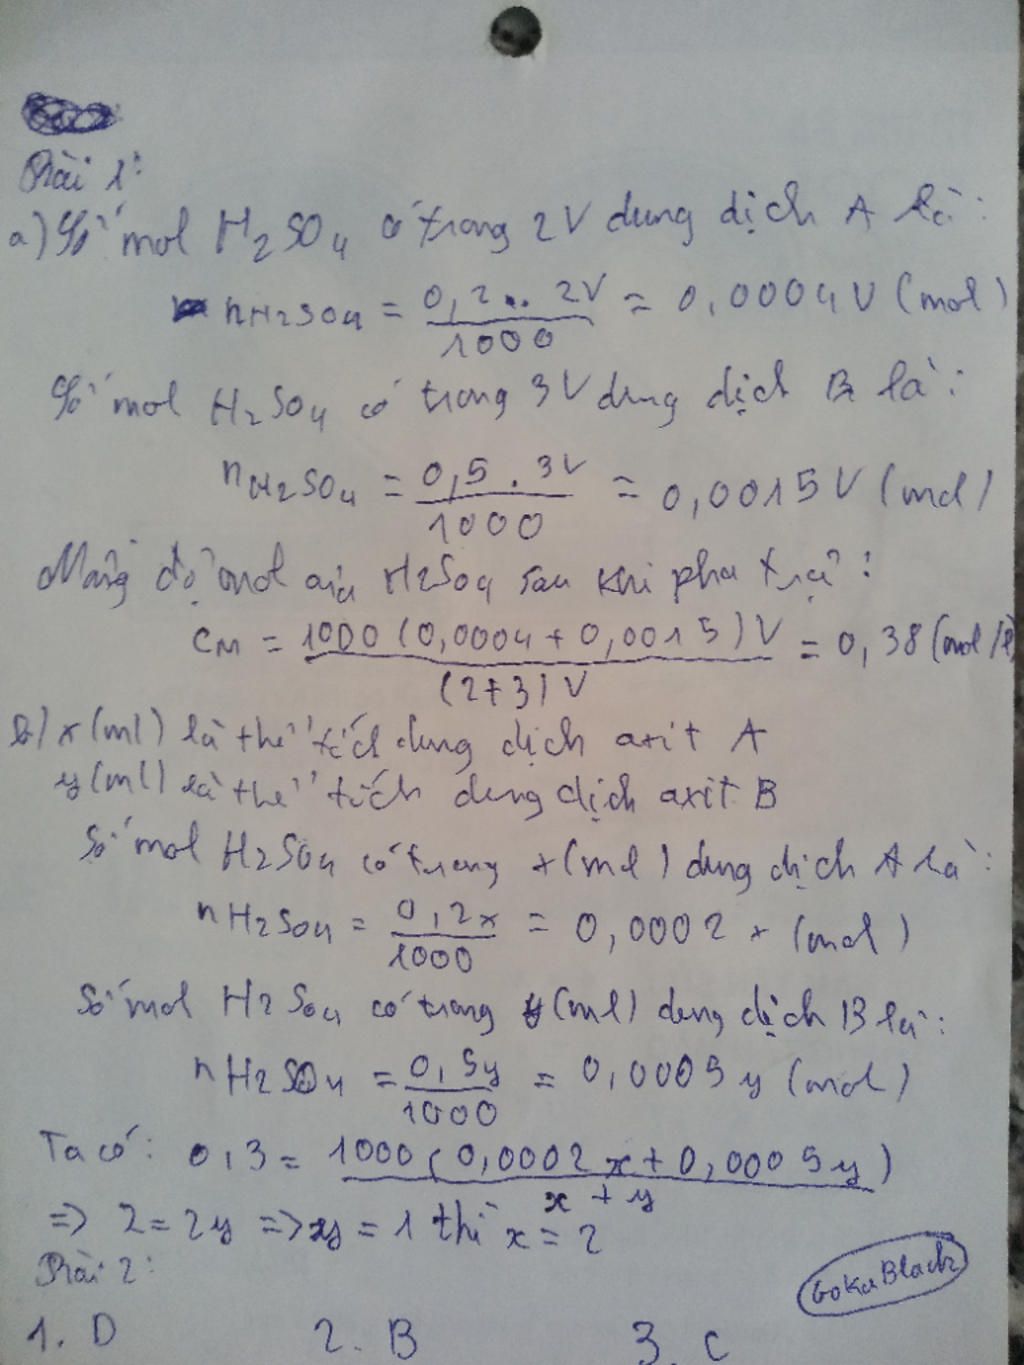 Bài 1:
a) Số mol H2SO4 có trong 2V dung dịch A là:
nH2SO4 = 0,2 . 2V / 1000 = 0,0004V (mol)
Số mol H2SO4 có trong 3V dung dịch B là:
nH2SO4 = 0,5 . 3V / 1000 = 0,0015V (mol)
Nồng độ mol của H2SO4 sau khi pha trộ:
CM = 1000 (0,0004 + 0,0015) V / (2+3) V = 0,38 (mol/l
b) x (ml) là thể tích dung dịch axit A
y (ml) là thể tích dung dịch axit B
Số mol H2SO4 có trong x (ml) dung dịch A là:
nH2SO4 = 0,2x / 1000 = 0,0002 x (mol)
Số mol H2SO4 có trong y (ml) dung dịch B là:
nH2SO4 = 0,5y / 1000 = 0,0005 y (mol)
Ta có: 0,3 = 1000 (0,0002 x + 0,0005 y) / x + y
=> 2 = 2y => y = 1 thì x = 2
Bài 2:
GokuBlack
1. D 2. B 3. C